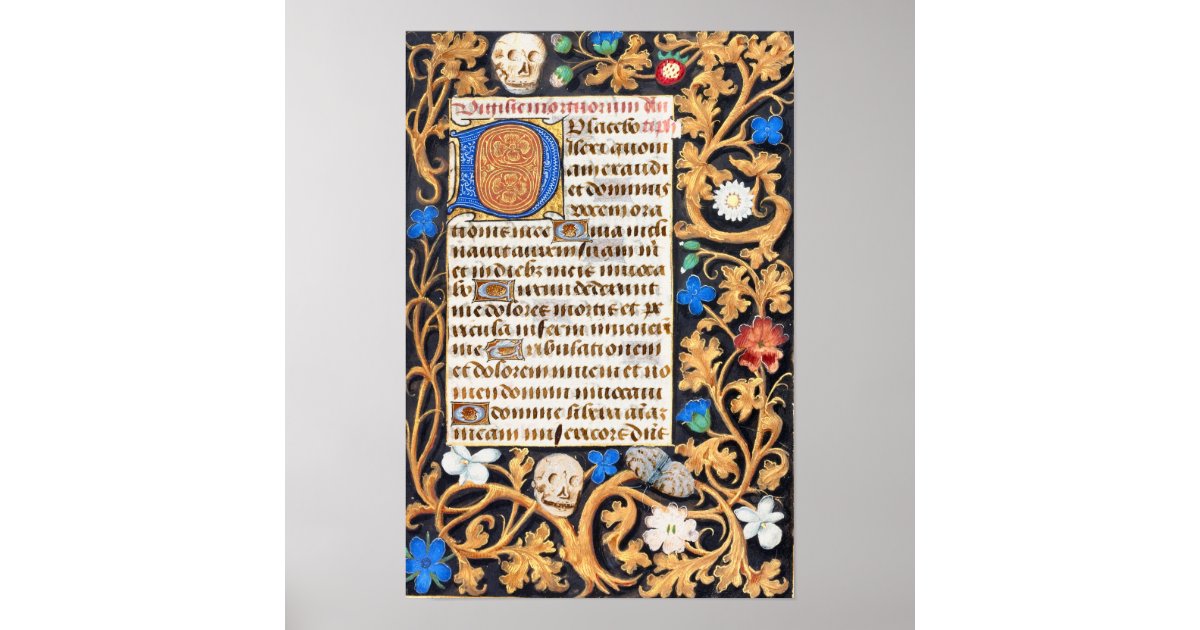 Vigilie mortuorum añ
Placebo ps
Dilexi quoni
am exaudi
et dominus
vocem ora
tionis mee Quia incli
navit aurem suam m̄
et in diebz meis invoca
bo Circumdederunt
me dolores mortis et pe
ricula inferni invenerūt
me Tribulationem
et dolorem inveni et no
men domini invocavi
O domine libera aīaz
meam misericors dn̄s